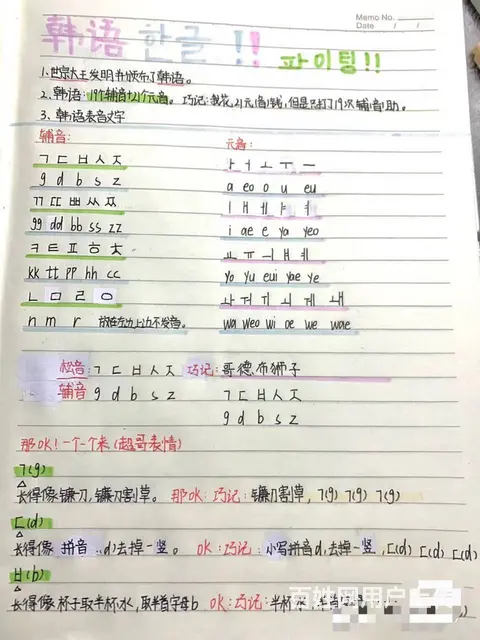 Memo No.
Date / /
韩语 한글 !!
파이팅!!
1.世宗大王发明并颁布了韩语。
2.韩语:19个辅音+21个元音。巧记:我花21元借1钱,但是只打了19次辅音助。
3.韩语表音文字
辅音: 元音:
ㄱ ㄷ ㅂ ㅅ ㅈ ㅏ ㅓ ㅗ ㅜ ㅡ
g d b s z a eo o u eu
ㄲ ㄸ ㅃ ㅆ ㅉ ㅣ ㅐ ㅔ ㅑ ㅕ
gg dd bb ss zz i ae e ya yeo
ㅋ ㅌ ㅍ ㅎ ㅊ ㅛ ㅠ ㅢ ㅒ ㅖ
kk tt pp hh cc yo yu eui yae ye
ㄴ ㅁ ㄹ ㅇ ㅘ ㅝ ㅟ ㅚ ㅞ ㅙ
n m r 放在左边上边不发音。 wa weo wi oe we wae
松音: ㄱ ㄷ ㅂ ㅅ ㅈ 巧记:哥德布狮子
辅音 g d b s z ㄱ ㄷ ㅂ ㅅ ㅈ
g d b s z
那OK!一个一个来(超哥表情)
ㄱ(g)
长得像镰刀,镰刀割草。那OK:巧记:镰刀割草,ㄱ(g) ㄱ(g) ㄱ(g)
ㄷ(d)
长得像 拼音 d)去掉一竖。 OK:巧记:小写拼音d,去掉一竖,ㄷ(d) ㄷ(d) ㄷ(d)
ㅂ(b)
长得像杯子取半杯水,取半首字母b OK:巧记:半杯水
百姓网用户